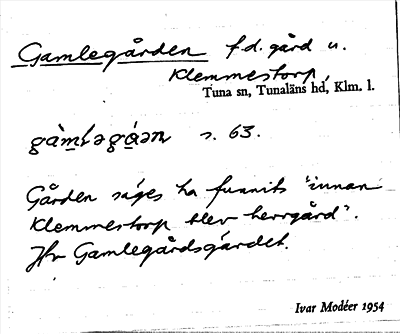 Gamlegården f.d. gård u.
Klemmestorp,
Tuna sn, Tunaläns hd, Klm. l.
s. 63.
Gården säges ha funnits "innan
Klemmestorp blev herrgård".
Jfr Gamlegårdsgärdet.
Ivar Modéer 1954